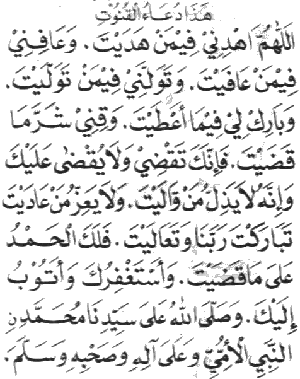 هَذَا دُعَاءُ الْقُنُوْتِ
اَللّٰهُمَّ اهْدِنِيْ فِيْمَنْ هَدَيْتَ. وَعَافِنِيْ
فِيْمَنْ عَافَيْتَ. وَتَوَلَّنِيْ فِيْمَنْ تَوَلَّيْتَ.
وَبَارِكْ لِيْ فِيْمَا أَعْطَيْتَ. وَقِنِيْ شَرَّمَا
قَضَيْتَ. فَإِنَّكَ تَقْضِيْ وَلَا يُقْضٰى عَلَيْكَ
وَإِنَّهُ لَا يَذِلُّ مَنْ وَّالَيْتَ. وَلَا يَعِزُّ مَنْ عَادَيْتَ
تَبَارَكْتَ رَبَّنَا وَتَعَالَيْتَ. فَلَكَ الْحَمْدُ
عَلَى مَا قَضَيْتَ. وَأَسْتَغْفِرُكَ وَأَتُوْبُ
إِلَيْكَ. وَصَلَّى اللهُ عَلَى سَيِّدِنَا مُحَمَّدِنِ
النَّبِيِّ الْأُمِّيِّ وَعَلَى آلِهِ وَصَحْبِهِ وَسَلَّمَ.